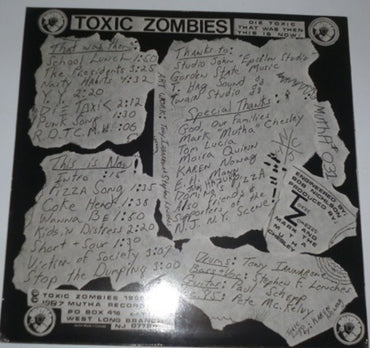 TOXIC ZOMBIES
DIE TOXIC
THAT WAS THEN
THIS IS NOW!
That was then:
School Lunch 1:50
The Presidents 3:25
Nasty Habits 4:32
N.J. 2:20
Die Toxic 2:12
Punk Song 1:30
R.O.T.C.M.W. :06
This is Now!
Intro :15
Pizza Song 1:35
Coke Head 1:38
Wanna Be 1:50
Kids in Distress 2:20
Short + Sour 1:30
Victim of Society 3:07
Stop the Dumping 3:00
Thanks to:
Studio John
Garden State Music
T. Hag Sound
Twain Studio
Special Thanks:
God, Our Families
Mark "Mutha" Chesley
Tom Lucia
Moira Quinn
KAREN Nowag
PIZZA
friends +
Supporters of the
N.J. N.Y. Scene
MUTHA #031
ENGINEERED BY
PRODUCED BY
TZ AND
MARK
CHESLEY
Drums: Tom
Bass + Vox: Stephen F.
Guitar: Paul
Pete
© TOXIC ZOMBIES
1987 MUTHA RECORDS
PO BOX 416
WEST LONG BRANCH
NJ